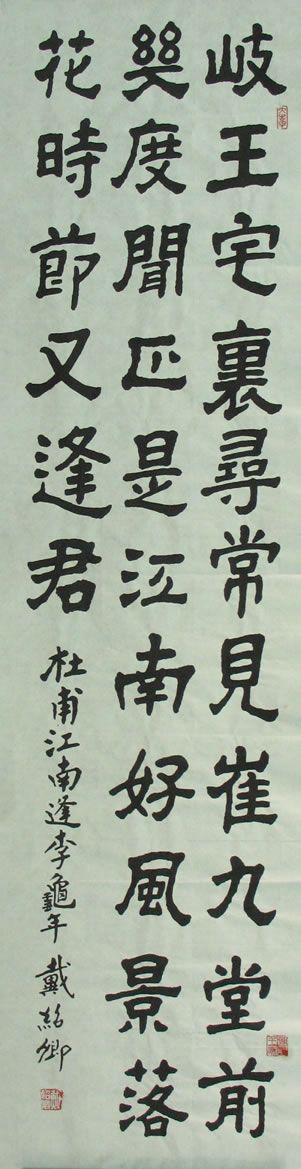 岐王宅裏尋常見崔九堂前
幾度聞正是江南好風景落
花時節又逢君
杜甫江南逢李龜年 戴紹卿